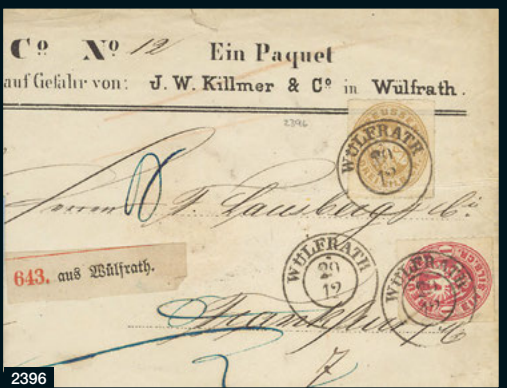 Cº Nº 12 Ein Paquet
auf Gefahr von: J. W. Killmer & Cº in Wülfrath.
2396
WÜLFRATH
29
12
Herrn
643. aus Wülfrath.
WÜLFRATH
29
12
WÜLFRATH
Frankfurt
2396